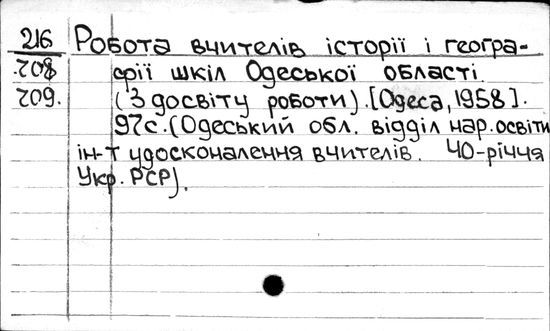 216 Робота вчителів історії і геогра-
208 фії шкіл Одеської області.
209. (З досвіту роботи). [Одеса, 1958].
97с. (Одеський обл. відділ нар. освіти
ін-т удосконалення вчителів. 40-річчя
Укр. РСР).